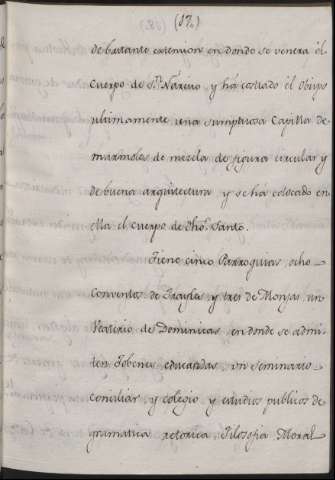 (17.)
de bastante extension en donde se venera el
cuerpo de Sn. Narciso y ha costeado el Obispo
ultimamente una sumptuosa Capilla de
marmoles de mezcla de figura circular y
de buena arquitectura y se ha colocado en
ella el cuerpo de dho. Santo.
Tiene cinco Parroquias, ocho
Conventos de Frayles y tres de Monjas, un
Beaterio de Dominicas en donde se admi-
ten Jobenes educandas, un seminario
conciliar, y colegio y estudios publicos de
gramatica retorica, Filosofia Moral